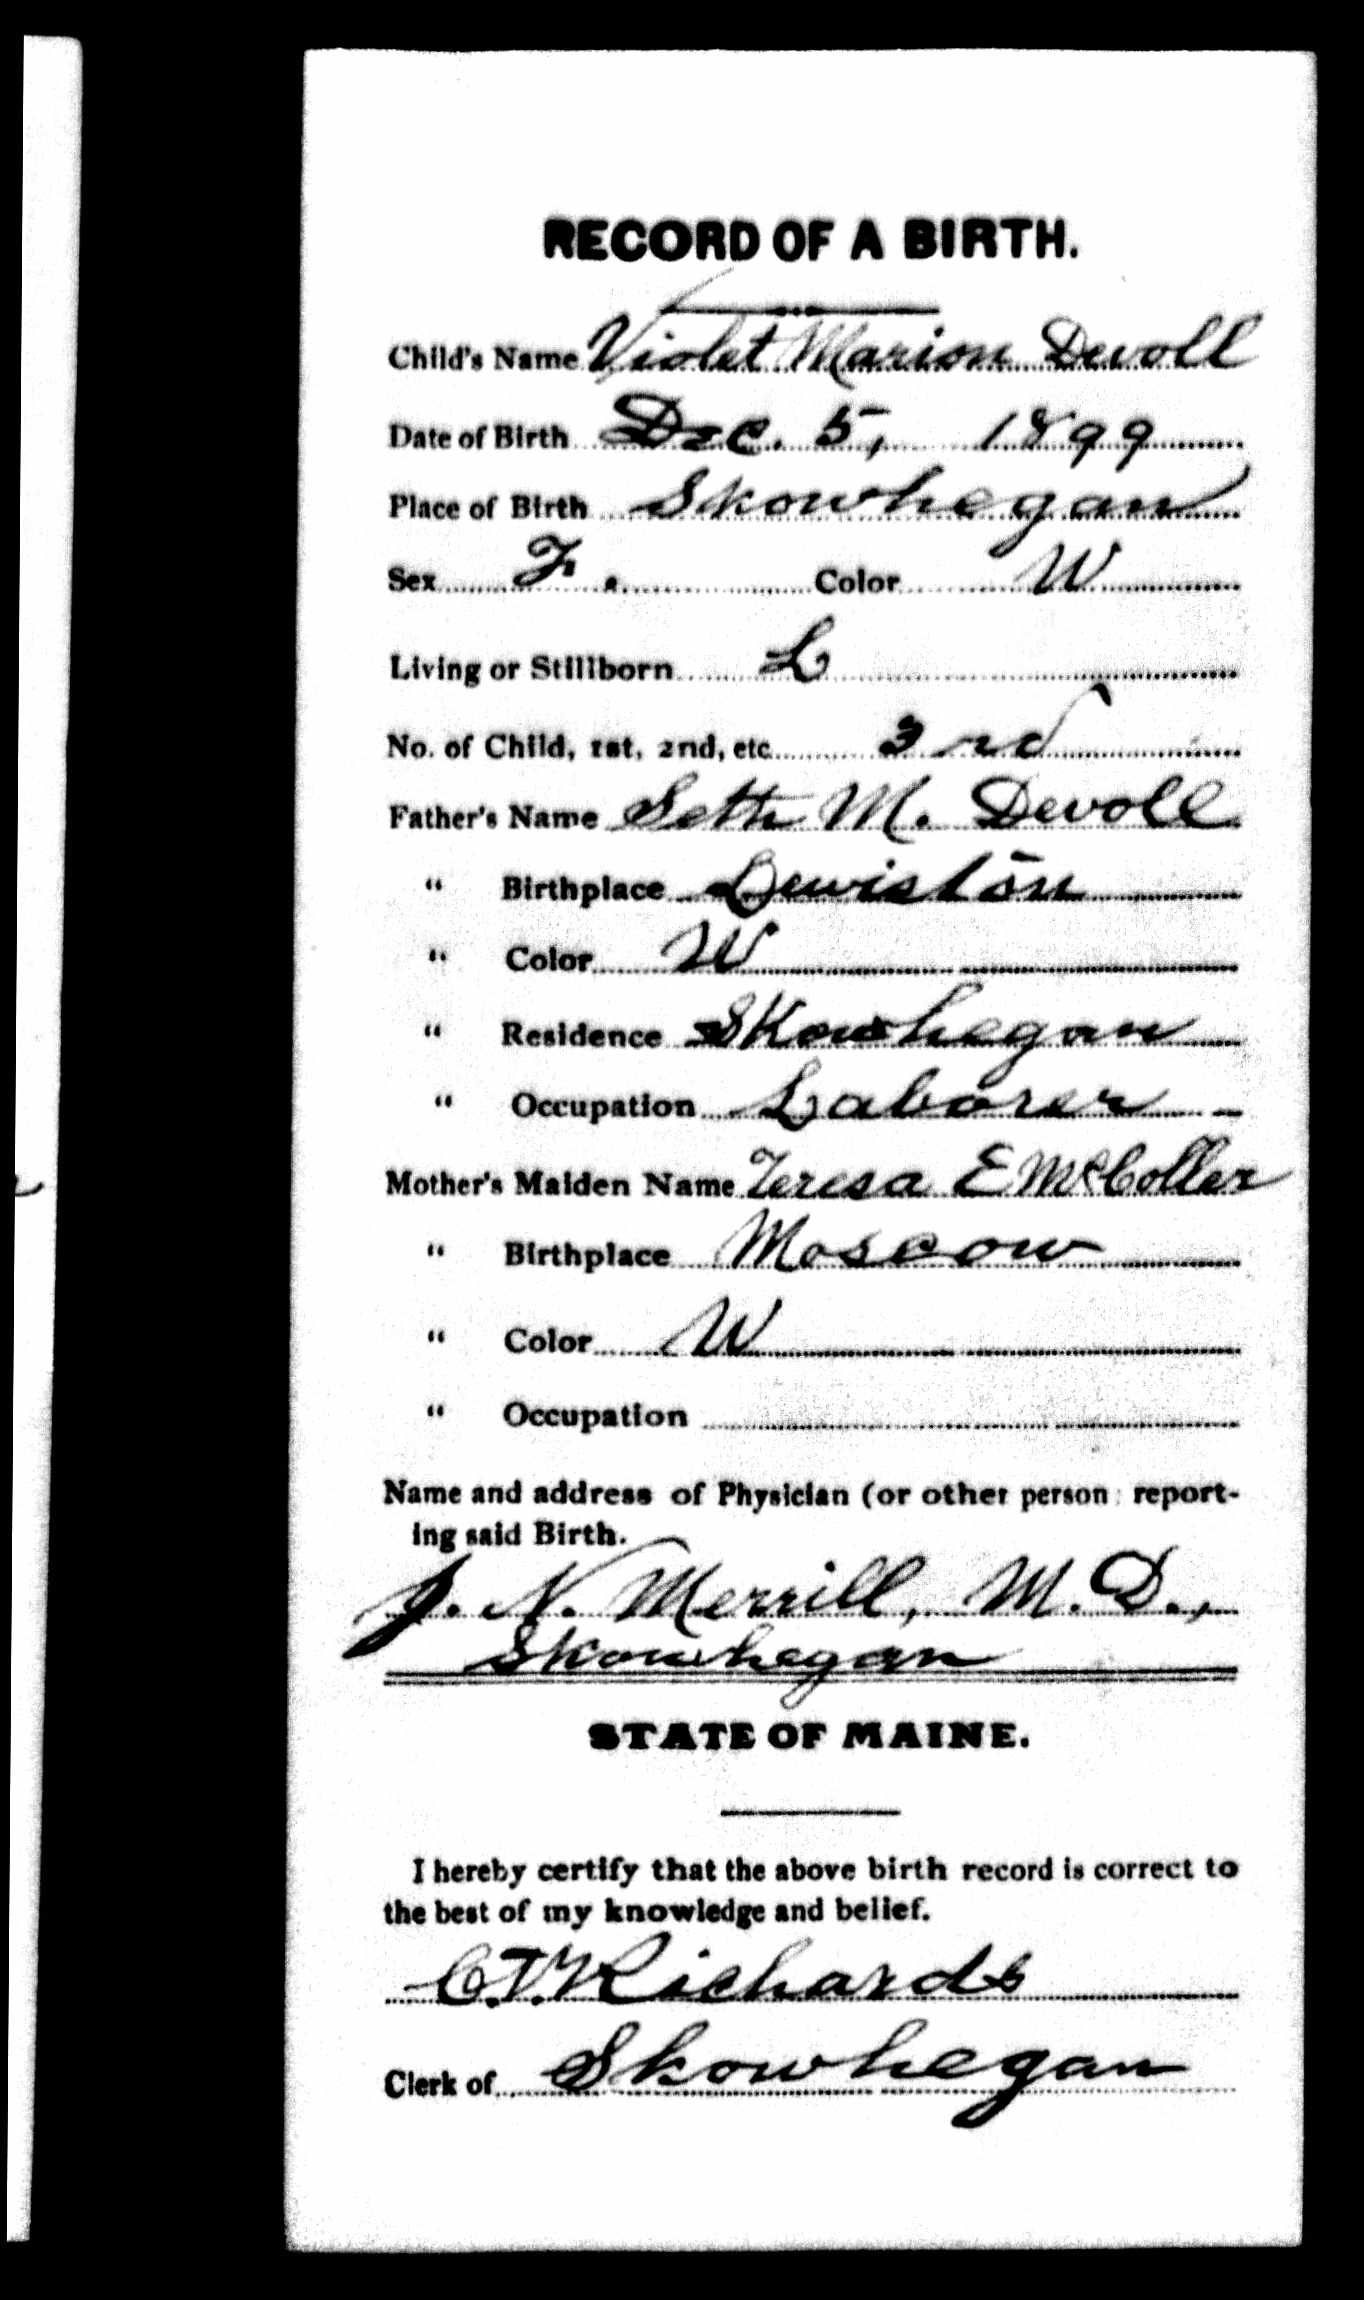 RECORD OF A BIRTH.
Child's Name Violet Marion Devoll
Date of Birth Dec. 5, 1899
Place of Birth Skowhegan
Sex F. Color W
Living or Stillborn L
No. of Child, 1st, 2nd, etc 3rd
Father's Name Seth M. Devoll
" Birthplace Lewiston
" Color W
" Residence Skowhegan
" Occupation Laborer
Mother's Maiden Name Teresa E McCollar
" Birthplace Moscow
" Color W
" Occupation
Name and address of Physician (or other person report-
ing said Birth.
J. N. Merrill, M.D.,
Skowhegan
STATE OF MAINE.
I hereby certify that the above birth record is correct to
the best of my knowledge and belief.
C.T. Richards
Clerk of Skowhegan